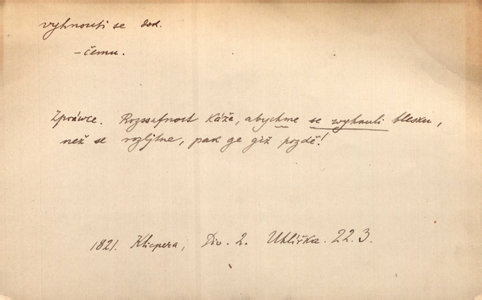 vyhnouti se dok.
– čemu.
Zpráwce. Rozšafnost káže, abychme se wyhnuli blesku,
než se rozlítne, pak ge giž pozdě!
1821. Klicpera, Div. 2. Uhlířka. 22.3.